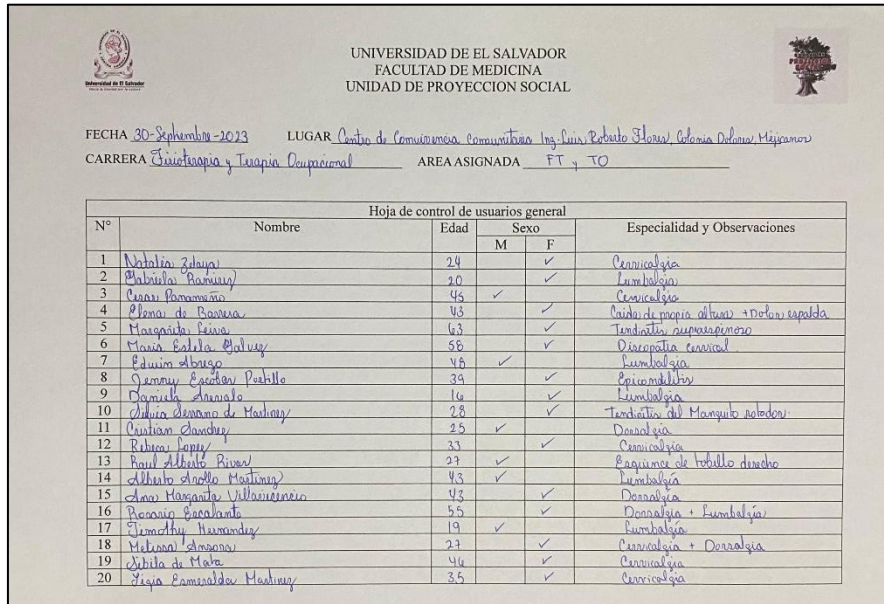 Universidad de El Salvador
UNIVERSIDAD DE EL SALVADOR
FACULTAD DE MEDICINA
UNIDAD DE PROYECCION SOCIAL
FECHA 30-Septiembre-2023 LUGAR Centro de Convivencia comunitaria Ing. Luis Roberto Flores, Colonia Dolores, Mejicanos
CARRERA Fisioterapia y Terapia Ocupacional AREA ASIGNADA FT y TO
Hoja de control de usuarios general
N° Nombre Edad Sexo Especialidad y Observaciones
M F
1 Natalia Zelaya 24 ✓ Cervicalgia
2 Gabriela Ramirez 20 ✓ Lumbalgia
3 Cesar Panameño 45 ✓ Cervicalgia
4 Elena de Barrera 43 ✓ Caida de propia altura + Dolor espalda
5 Margarita Leiva 63 ✓ Tendinitis supraespinoso
6 Maria Estela Galvez 58 ✓ Discopatia cervical
7 Edwin Abrego 48 ✓ Lumbalgia
8 Jenny Escobar Portillo 39 ✓ Epicondilitis
9 Daniela Arevalo 16 ✓ Lumbalgia
10 Silvia Serrano de Martinez 28 ✓ Tendinitis del Manguito rotador
11 Cristian Sanchez 25 ✓ Dorsalgia
12 Rebeca Lopez 33 ✓ Cervicalgia
13 Raul Alberto Rivas 27 ✓ Esguince de tobillo derecho
14 Alberto Martinez 43 ✓ Lumbalgia
15 Ana Margarita Villavicencio 43 ✓ Dorsalgia
16 Rosario Escalante 55 ✓ Dorsalgia + Lumbalgía
17 Timothy Hernandez 19 ✓ Lumbalgía
18 Melissa 27 ✓ Cervicalgia + Dorsalgia
19 Sibila de Mata 46 ✓ Cervicalgia
20 Ligia Esmeralda Martinez 35 ✓ Cervicalgia